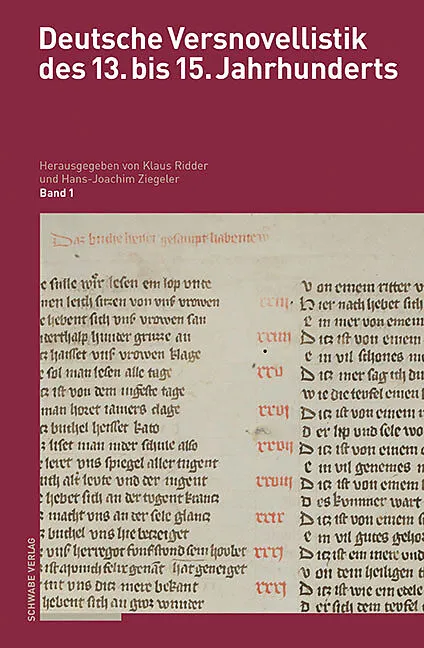 Deutsche Versnovellistik
des 13. bis 15. Jahrhunderts
Herausgegeben von Klaus Ridder
und Hans-Joachim Ziegeler
Band 1
Daz buch heizet gesampt habentew
e stille wir lesen ein lop vnte
nen leich sitzen von vns vrowen
e hebent sich vns vrowen
terthalp hunter gruzze an
z haisset vns vrowen klage
e sol man lesen alle tage
z ist von dem iugeste tage
man horet iamers clage
z buchel heisset kato
z liset man in der schule also
e leret vns spiegel aller tugent
alt levte vnd der iugent
e hebet sich an der tugent krantz
macht vns an der sele glantz
z buchel vns hie bezeiget
vnser herregot
hat geneiget
vns ditz mere bekant
hebent sich an groz wunner
xxiij
xxiiij
xxv
xxvj
xxvij
xxviij
xxix
xxxj
V on einem ritter v
H ier nach hebet sich
E in mer von einem
D itz ist von einem
E in vil schones m
D itz mer sag ich du
W ie die tevfel einen
D itz ist von einem
D er lip vnd sele wo
D itz ist von einem
E in vil genemes m
D itz ist von einem
D es kummer wart
D itz ist von einem
E in vil gutes gehor
D itz ist ein mere vnd
V on dem heiligen
D itz ist wie ein edele
D er sich dem tevfel
SCHWABE VERLAG